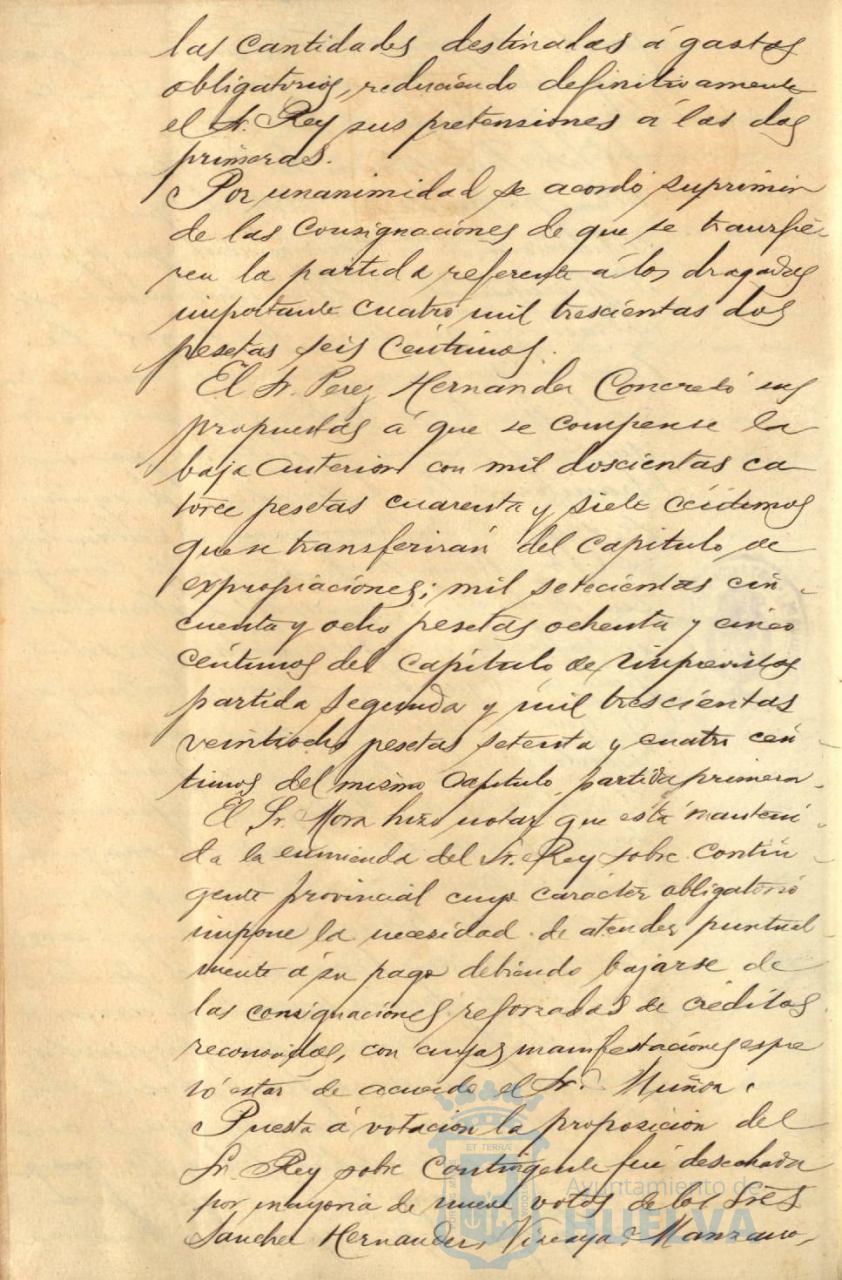 las cantidades destinadas á gastos
obligatorios, reduciendo definitivamente
el Sr. Rey sus pretensiones á las dos
primeras.
Por unanimidad se acordó suprimir
de las consignaciones de que se transfie-
ren la partida referente á los dragados
importante cuatro mil trescientas dos
pesetas seis céntimos.
El Sr. Perez Hernandez concretó sus
propuestas á que se compense la
baja anterior con mil doscientas ca
torce pesetas cuarenta y siete céntimos
que se transferirán del capitulo de
expropiaciones; mil setecientas cin-
cuenta y ocho pesetas ochenta y cinco
céntimos del capítulo de imprevistos
partida segunda y mil trescientas
veintiocho pesetas setenta y cuatro cén-
timos del mismo capítulo, partida primera.
El Sr. Mora hizo notar que está manteni-
da la enmienda del Sr. Rey sobre contin-
gente provincial cuyo carácter obligatorio
impone la necesidad de atender puntual-
mente á su pago debiendo bajarse de
las consignaciones reforzadas de créditos
reconocidos, con cuyas manifestaciones expre
só estar de acuerdo el Sr. Muñoz.
Puesta á votación la proposición del
Sr. Rey sobre Contingente fué desechada
por mayoria de nueve votos de los Sres
Sanchez Hernandez, Vizcaya, Manzano,
ET TERRA
Ayuntamiento de
HUELVA